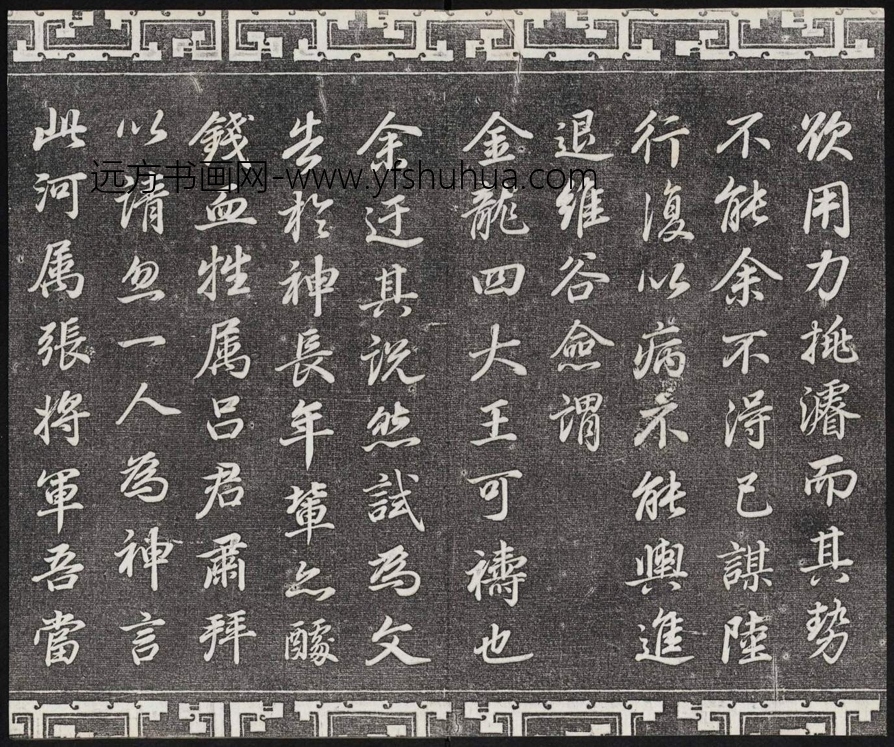 欲用力挑濬而其勢
不能余不得已謀陸
行復以病不能輿進
退維谷僉謂
金龍四大王可禱也
余迂其說然試為文
告於神長年輩亦醵
錢血牲属吕君肅拜
以請忽一人為神言
此河属張將軍吾當
远方书画网-www.yfshuhua.com